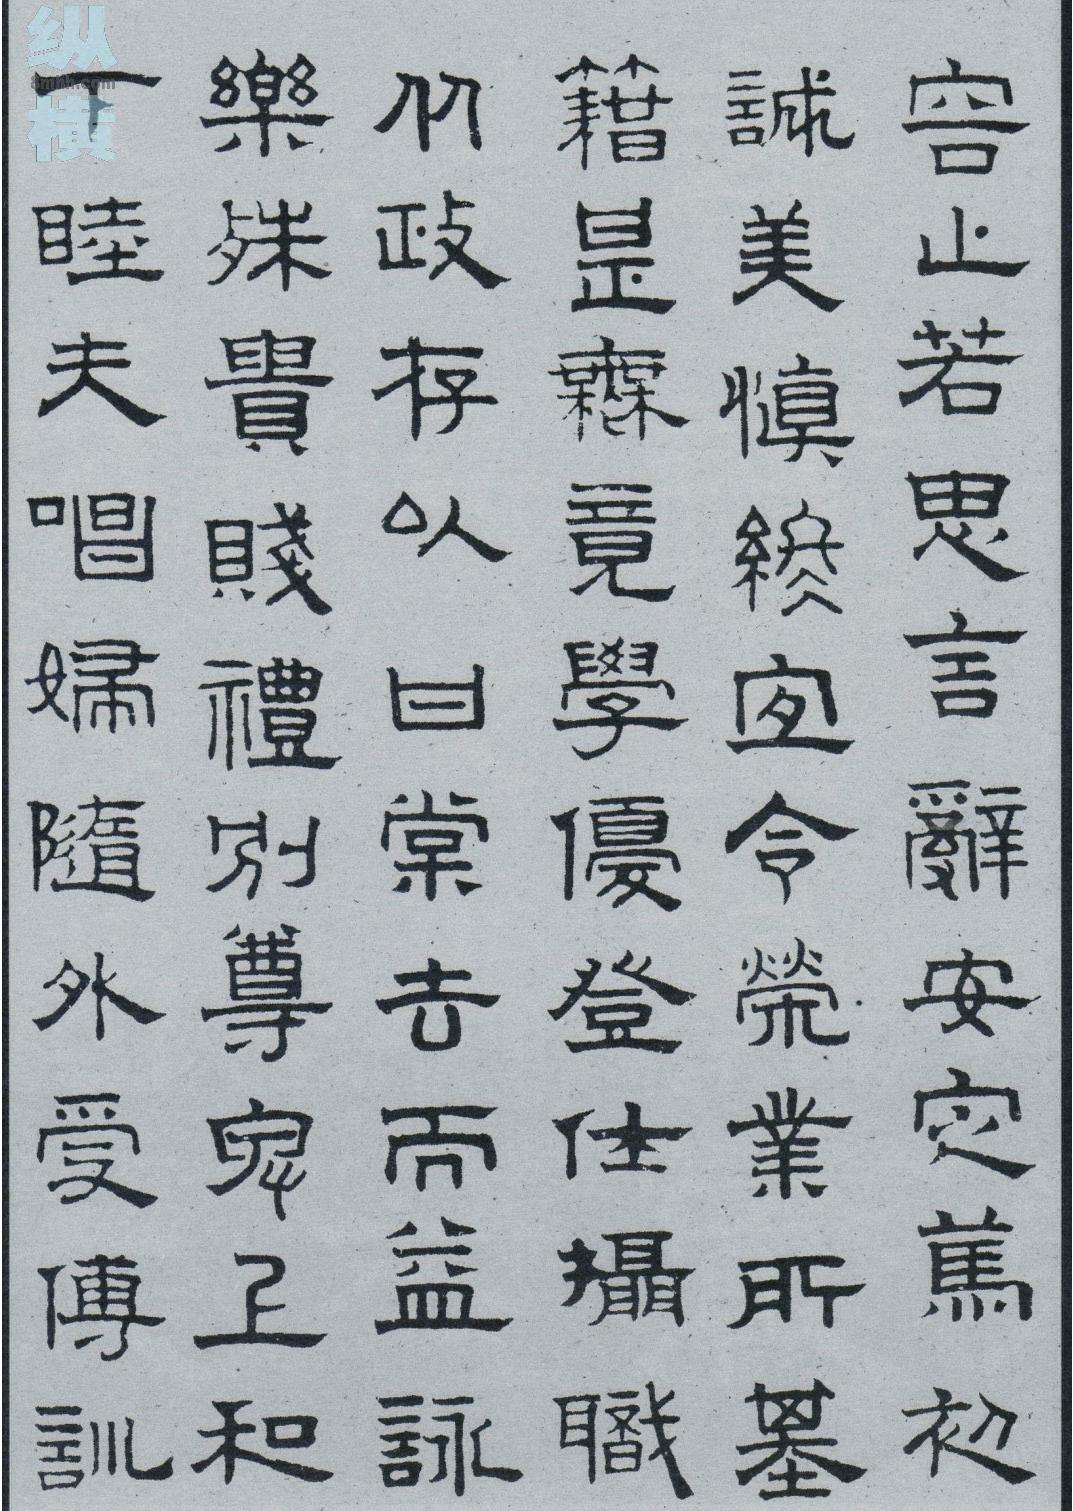 容止若思言辭安定篤初
誠美慎終宜令榮業所基
籍甚無竟學優登仕攝職
從政存以甘棠去而益詠
樂殊貴賤禮別尊卑上和
下睦夫唱婦隨外受傅訓
纵横